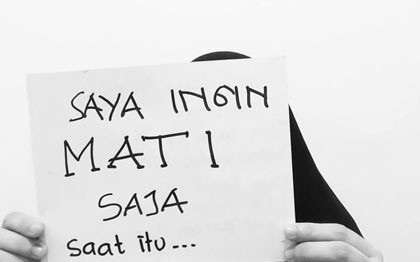 SAYA INGIN
MATI
SAJA
saat itu...